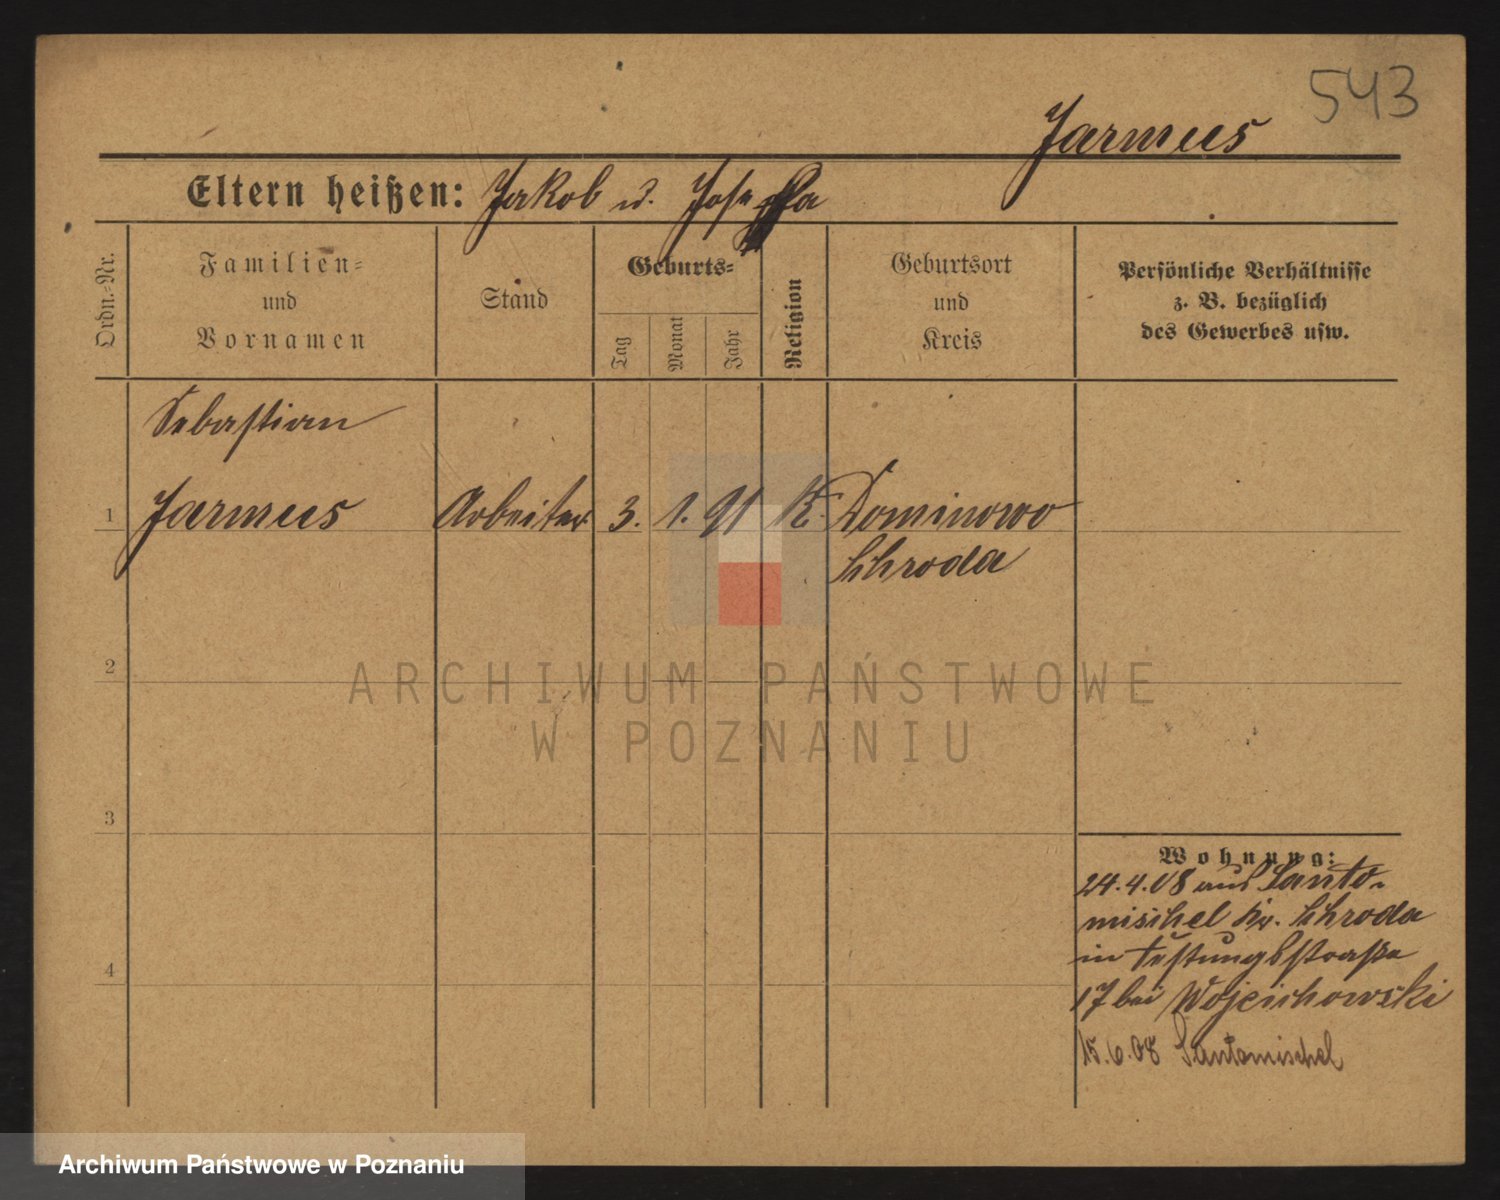 543
Jarmus
Eltern heißen: Jakob u. Josepha
Ordn.-Nr.
Familien-
und
Vornamen
Stand
Geburts-
Tag
Monat
Jahr
Religion
Geburtsort
und
Kreis
Persönliche Verhältnisse
z. B. bezüglich
des Gewerbes usw.
Sebastian
1 Jarmus Arbeiter 3. 1. 91 K. Dominowo
Schroda
2
ARCHIWUM PAŃSTWOWE
W POZNANIU
3
Wohnung:
24.4.08 aus Santo-
mischel Kr. Schroda
in Festungsstraße
4
17 bei Wojcichowski
15.6.08 Santomischel
Archiwum Państwowe w Poznaniu